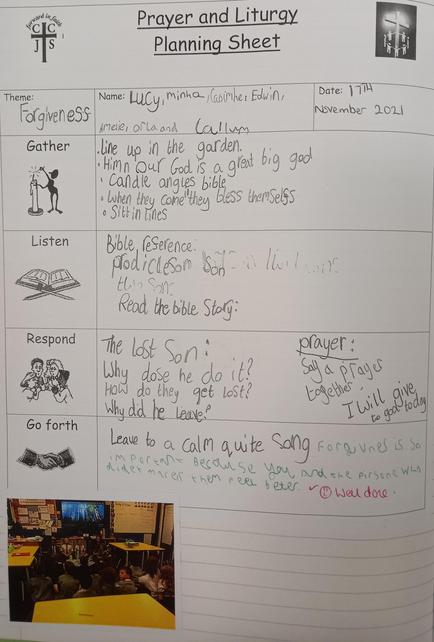 forward in faith
C C
J S
Prayer and Liturgy
Planning Sheet
Theme:
Forgiveness
Name: Lucy, minha, Caoimhe, Edwin,
Amelie, orla and Callum
Date: 17TH
November 2021
Gather
. Line up in the garden.
· Himn our God is a great big god
· Candle angles bible
· when they come they bless themselfs
· Sitt in lines
Listen
Bible, reserence:
prodiclesom son
this son.
Read the bible Story:
Respond
The lost Son:
Why dose he do it?
How do they get lost?
Why did he leave?
prayer:
Say a prayer
together
I will give
to god today
Go forth
Leave to a calm quite song Forgivnes is so
important Because you and the persone who
didet maces them feel beter. ✓ Well done.